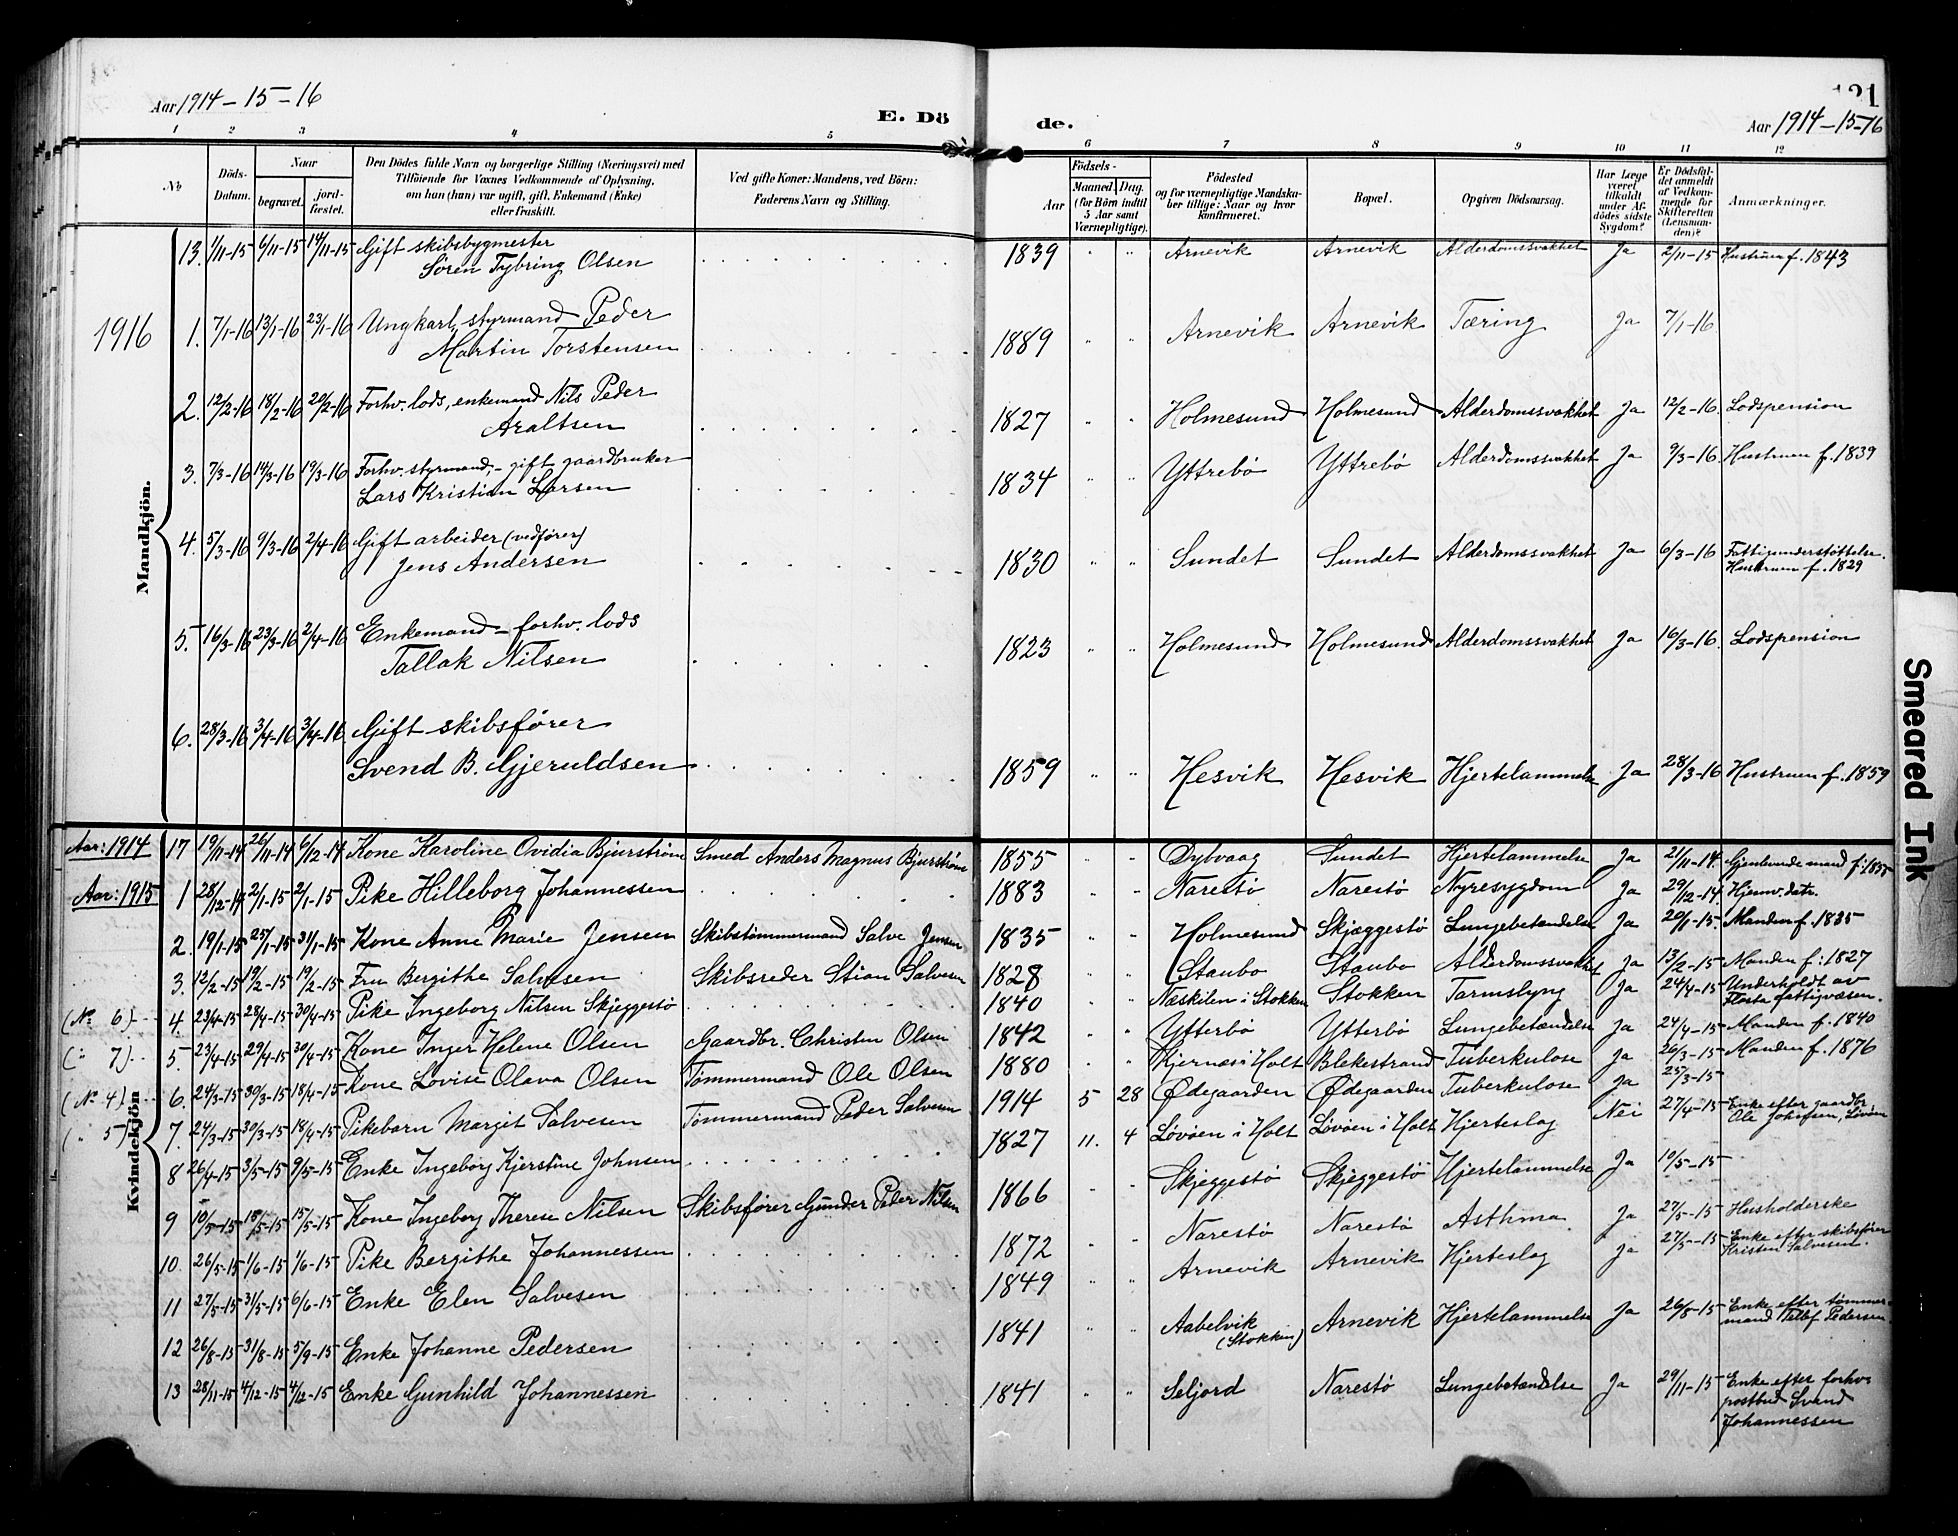 Aar 1914 – 15 – 16
E. Dö
de.
Aar 1914 – 15 – 16
1 2 3 4 5 6 7 8 9 10 11 12
№
Döds-Datum.
Naar
begravet.
jord-fæstet.
Den Dödes fulde Navn og borgerlige Stilling (Næringsvei) med
Tilföiende for Voxnes Vedkommende af Oplysning,
om han (hun) var ugift, gift, Enkemand (Enke)
eller fraskilt.
Ved gifte Koner: Mandens, ved Börn:
Faderens Navn og Stilling.
Födsels-
Aar
Maaned. Dag.
(for Börn indtil
5 Aar samt
Værnepligtige).
Födested
og for værnepligtige Mandska-
ber tillige: Naar og hvor
konfirmeret.
Bopæl.
Opgiven Dödsaarsag.
Har Læge
været
tilkaldt
under Af-
dödes sidste
Sygdom?
Er Dödsfal-
det anmeldt
af Vedkom-
mende for
Skifteretten
(Lensman-
den)?
Anmærkninger.
Mandkjön.
13. 1/11-15 6/11-15 14/11-15 Gift skibsbygmester
Sören Tybring Olsen 1839 " " Arnevik Arnevik Alderdomssvakhet Ja 2/11-15 Hustruen f. 1843
1916
1. 7/1-16 13/1-16 23/1-16 Ungkarl, styrmand Peder
Martin Torstensen 1889 " " Arnevik Arnevik Tæring Ja 7/1-16
2. 12/2-16 18/2-16 20/2-16 Forhv. lods, enkemand Nils Peder
Araltsen 1827 " " Holmesund Holmesund Alderdomssvakhet Ja 12/2-16. Lodspension
3. 7/3-16 14/3-16 19/3-16 Forhv. styrmand, – gift gaardbruker
Lars Kristian Larsen 1834 " " Yttrebö Yttrebö Alderdomssvakhet Ja 9/3-16. Hustruen f. 1839
4. 5/3-16 9/3-16 2/4-16 Gift arbeider (vedfører)
Jens Andersen 1830 " " Sundet Sundet Alderdomssvakhet Ja 6/3-16 Fattigunderstøttelse.
Hustruen f. 1829
5. 16/3-16 23/3-16 2/4-16 Enkemand – forhv. lods
Tallak Nilsen 1823 " " Holmesund Holmesund Alderdomssvakhet Ja 16/3-16. Lodspension
6. 28/3-16 3/4-16 3/4-16 Gift skibsfører
Svend B. Gjeruldsen 1859 " " Hesvik Hesvik Hjertelammelse Ja 28/3-16 Hustruen f. 1859
Kvindekjön
Aar: 1914 17 19/11-14 26/11-14 6/12-14 Kone Karoline Ovidia Bjurström Smed Anders Magnus Bjurström 1855 " " Dybvaag Sundet Hjertelammelse Ja 21/11-14. Gjenlevende mand f. 1855
Aar: 1915 1 28/12-14 2/1-15 2/1-15 Pike Hilleborg Johannessen 1883 " " Narestö Narestö Nyresygdom Ja 29/12-14. Hjemv. datr.
2. 19/1-15 25/1-15 31/1-15 Kone Anne Marie Jensen Skibstømmermand Salve Jensen 1835 " " Holmesund Skjæggestö Lungebetændelse Ja 20/1-15. Manden f. 1835
3. 12/2-15 19/2-15 19/2-15 Fru Bergithe Salvesen Skibsreder Stian Salvesen 1828 " " Staubo Staubo Alderdomssvakhet Ja 13/2-15 Manden f: 1827
(№ 6) 4. 23/4-15 28/4-15 30/4-15 Pike Ingeborg Nilsen Skjeggestö 1840 Næskilen i Stokken Stokken Tarmslyng Ja 24/4-15 Underholdt av
Flosta fattigvæsen.
(" 7) 5. 23/4-15 29/4-15 30/4-15 Kone Inger Helene Olsen Gaardbr. Christen Olsen 1842 " Ytterbö Ytterbö Lungebetændelse Ja 24/4-15 Manden f. 1840
(№ 4) 6. 24/3-15 30/3-15 18/4-15 Kone Lovise Olava Olsen Tømmermand Ole Olsen 1880 " Kjernæs i Holt Blekestrand Tuberkulose Ja 26/3-15 Manden f. 1876
(" 5) 7. 24/3-15 30/3-15 18/4-15 Pikebarn Margit Salvesen Tømmermand Peder Salvesen 1914 5 28 Ødegaarden Ødegaarden Tuberkulose Ja 25/3-15
8 26/4-15 3/5-15 9/5-15 Enke Ingeborg Kjerstine Johnsen 1827 11. 4 Lövöen i Holt Lövöen i Holt Hjerteslag Nei 27/4-15 Enke efter gaardbr.
Ole Johnsen, Lövöen
9 10/5-15 18/5-15 15/5-15 Kone Ingeborg Therese Nilsen Skibsfører Gunder Peder Nilsen 1866 " " Skjeggestö Skjeggestö Hjertelammelse Ja 10/5-15
10. 26/5-15 1/6-15 1/6-15 Pike Bergithe Johannessen 1872 " " Narestö Narestö Asthma Ja 27/5-15 Husholderske
11 27/5-15 31/5-15 6/6-15 Enke Elen Salvesen 1849 " " Arnevik Arnevik Hjerteslag Ja 27/5-15 Enke efter skibsfører
Kristen Salvesen.
12 26/8-15 31/8-15 5/9-15 Enke Johanne Pedersen 1841 " " Aabelvik
(Stokken) Arnevik Hjertelammelse Ja 26/8-15 Enke efter tømmer-
mand Pedersen
13 28/11-15 4/12-15 4/12-15 Enke Gunhild Johannessen 1841 " " Seljord Narestö Lungebetændelse Ja 29/11-15 Enke efter forhv.
postbud Svend
Johannessen
Smeared Ink